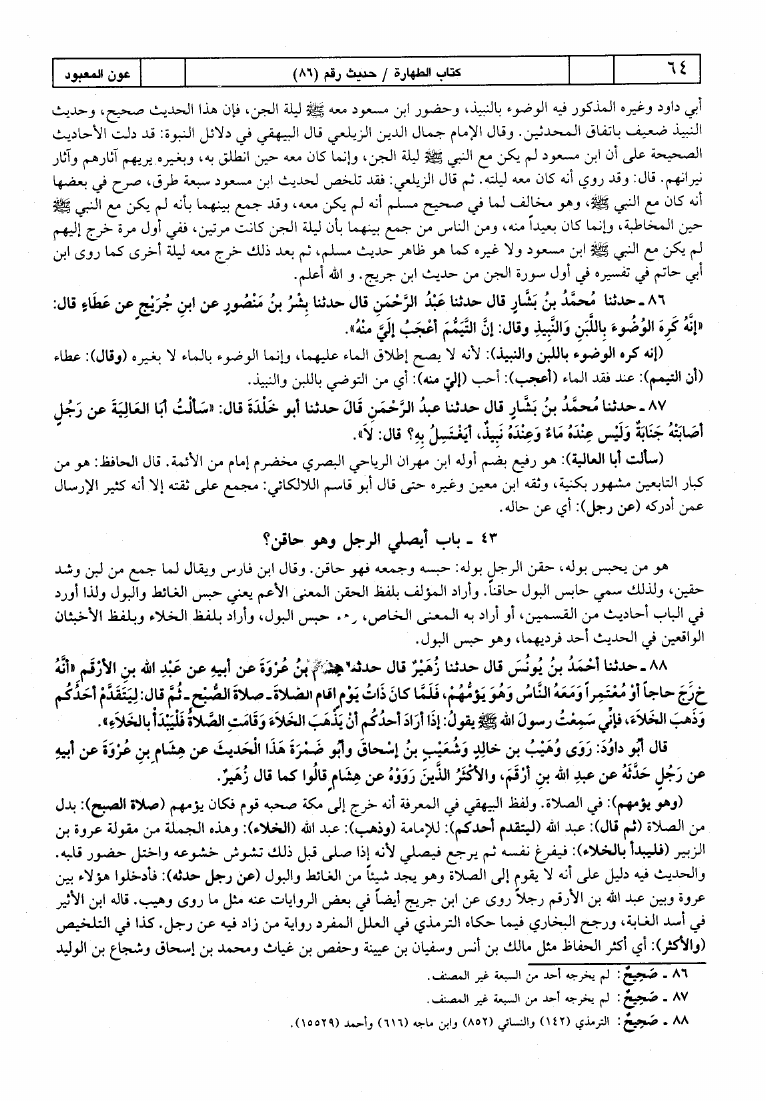 ٦٤
كتاب الطهارة / حديث رقم (٨٦)
عون المعبود
أبي داود وغيره المذكور فيه الوضوء بالنبيذ، وحضور ابن مسعود معه ﷺ ليلة الجن، فإن هذا الحديث صحيح، وحديث
النبيذ ضعيف باتفاق المحدثين. وقال الإمام جمال الدين الزيلعي قال البيهقي في دلائل النبوة: قد دلت الأحاديث
الصحيحة على أن ابن مسعود لم يكن مع النبي ﷺ ليلة الجن، وإنما كان معه حين انطلق به، وبغيره يريهم آثارهم وآثار
نيرانهم. قال: وقد روي أنه كان معه ليلته. ثم قال الزيلعي: فقد تلخص لحديث ابن مسعود سبعة طرق، صرح في بعضها
أنه كان مع النبي ﷺ، وهو مخالف لما في صحيح مسلم أنه لم يكن معه، وقد جمع بينهما بأنه لم يكن مع النبي ﷺ
حين المخاطبة، وإنما كان بعيداً منه، ومن الناس من جمع بينهما بأن ليلة الجن كانت مرتين، ففي أول مرة خرج إليهم
لم يكن مع النبي ﷺ ابن مسعود ولا غيره كما هو ظاهر حديث مسلم، ثم بعد ذلك خرج معه ليلة أخرى كما روى ابن
أبي حاتم في تفسيره في أول سورة الجن من حديث ابن جريج. و الله أعلم.
٨٦ ـ حدثنا مُحمَّدُ بنُ بَشَّارٍ قال حدثنا عَبْدُ الرَّحْمَنِ قال حدثنا بِشْرُ بنُ مَنْصُورٍ عن ابنِ جُرَيْجٍ عن عَطَاءٍ قال:
«إنَّهُ كَرِهَ الوُضُوءَ بِاللَّبَنِ وَالنَّبِيذِ وقال: إنَّ التَّيَمُّمَ أعْجَبُ إلَيَّ مِنْهُ».
(إنه كره الوضوء باللبن والنبيذ): لأنه لا يصح إطلاق الماء عليهما، وإنما الوضوء بالماء لا بغيره (وقال): عطاء
(أن التيمم): عند فقد الماء (أعجب): أحب (إليّ منه): أي من التوضي باللبن والنبيذ.
٨٧ ـ حدثنا مُحمَّدُ بنُ بَشَّارٍ قال حدثنا عبدُ الرَّحْمَنِ قَالَ حدثنا أبو خَلْدَةَ قال: «سَألْتُ أبَا العَالِيَةَ عن رَجُلٍ
أصَابَتْهُ جَنَابَةٌ وَلَيْس عِنْدَهُ مَاءٌ وَعِنْدَهُ نَبِيذٌ، أيَغْتَسِلُ بِهِ؟ قال: لاَ».
(سألت أبا العالية): هو رفيع بضم أوله ابن مهران الرياحي البصري مخضرم إمام من الأئمة. قال الحافظ: هو من
كبار التابعين مشهور بكنية، وثقه ابن معين وغيره حتى قال أبو قاسم اللالكائي: مجمع على ثقته إلا أنه كثير الإرسال
عمن أدركه (عن رجل): أي عن حاله.
٤٣ ـ باب أيصلي الرجل وهو حاقن؟
هو من يحبس بوله، حقن الرجل بوله: حبسه وجمعه فهو حاقن. وقال ابن فارس ويقال لما جمع من لبن وشد
حقين، ولذلك سمي حابس البول حاقناً. وأراد المؤلف بلفظ الحقن المعنى الأعم يعني حبس الغائط والبول ولذا أورد
في الباب أحاديث من القسمين، أو أراد به المعنى الخاص، حبس البول، وأراد بلفظ الخلاء وبلفظ الأخبثان
الواقعين في الحديث أحد فرديهما، وهو حبس البول.
٨٨ ـ حدثنا أحْمَدُ بنُ يُونُسَ قال حدثنا زُهَيْرٌ قال حدثنا هِشَامُ بنُ عُرْوَةَ عن أبيهِ عن عَبْدِ الله بنِ الأرْقَمِ «أنَّهُ
خَرَجَ حاجاً أوْ مُعْتَمِراً وَمَعَهُ النَّاسُ وَهُوَ يَؤُمُّهُمْ، فَلَمَّا كَانَ ذَاتَ يَوْمٍ أقَامَ الصَّلاةَ ـ صَلاةَ الصُّبْحِ ـ ثُمَّ قال: لِيَتَقَدَّمْ أحَدُكُم
وَذَهَبَ الخَلاَءَ، فإنِّي سَمِعْتُ رسولَ الله ﷺ يقولُ: إذَا أرَادَ أحَدُكُم أنْ يَذْهَبَ الخَلاَءَ وَقَامَتِ الصَّلاةُ فَلْيَبْدَأْ بالخَلاَءِ».
قال أبُو داوُدَ: رَوَى وُهَيْبُ بن خالِدٍ وَشُعَيْبُ بنُ إسْحاقَ وأبُو ضَمْرَةَ هَذَا الْحَدِيثَ عن هِشَامِ بنِ عُرْوَةَ عن أبيهِ
عن رَجُلٍ حَدَّثَهُ عن عبدِ الله بنِ أرْقَمَ، والأكْثَرُ الَّذِينَ رَوَوْهُ عن هِشامٍ قالُوا كما قال زُهَيْرٌ.
(وهو يؤمهم): في الصلاة. ولفظ البيهقي في المعرفة أنه خرج إلى مكة صحبه قوم فكان يؤمهم (صلاة الصبح): بدل
من الصلاة (ثم قال): عبد الله (ليتقدم أحدكم): للإمامة (وذهب): عبد الله (الخلاء): وهذه الجملة من مقولة عروة بن
الزبير (فليبدأ بالخلاء): فيفرغ نفسه ثم يرجع فيصلي لأنه إذا صلى قبل ذلك تشوش خشوعه واختل حضور قلبه.
والحديث فيه دليل على أنه لا يقوم إلى الصلاة وهو يجد شيئاً من الغائط والبول (عن رجل حدثه): فأدخلوا هؤلاء بين
عروة وبين عبد الله بن الأرقم رجلاً روى عن ابن جريج أيضاً في بعض الروايات عنه مثل ما روى وهيب. قاله ابن الأثير
في أسد الغابة، ورجح البخاري فيما حكاه الترمذي في العلل المفرد رواية من زاد فيه عن رجل. كذا في التلخيص
(والأكثر): أي أكثر الحفاظ مثل مالك بن أنس وسفيان بن عيينة وحفص بن غياث ومحمد بن إسحاق وشجاع بن الوليد
٨٦ ـ صَحِيحٌ: لم يخرجه أحد من السبعة غير المصنف.
٨٧ ـ صَحِيحٌ: لم يخرجه أحد من السبعة غير المصنف.
٨٨ ـ صَحِيحٌ: الترمذي (١٤٢) والنسائي (٨٥٢) وابن ماجه (٦١٦) وأحمد (١٥٥٢٩).